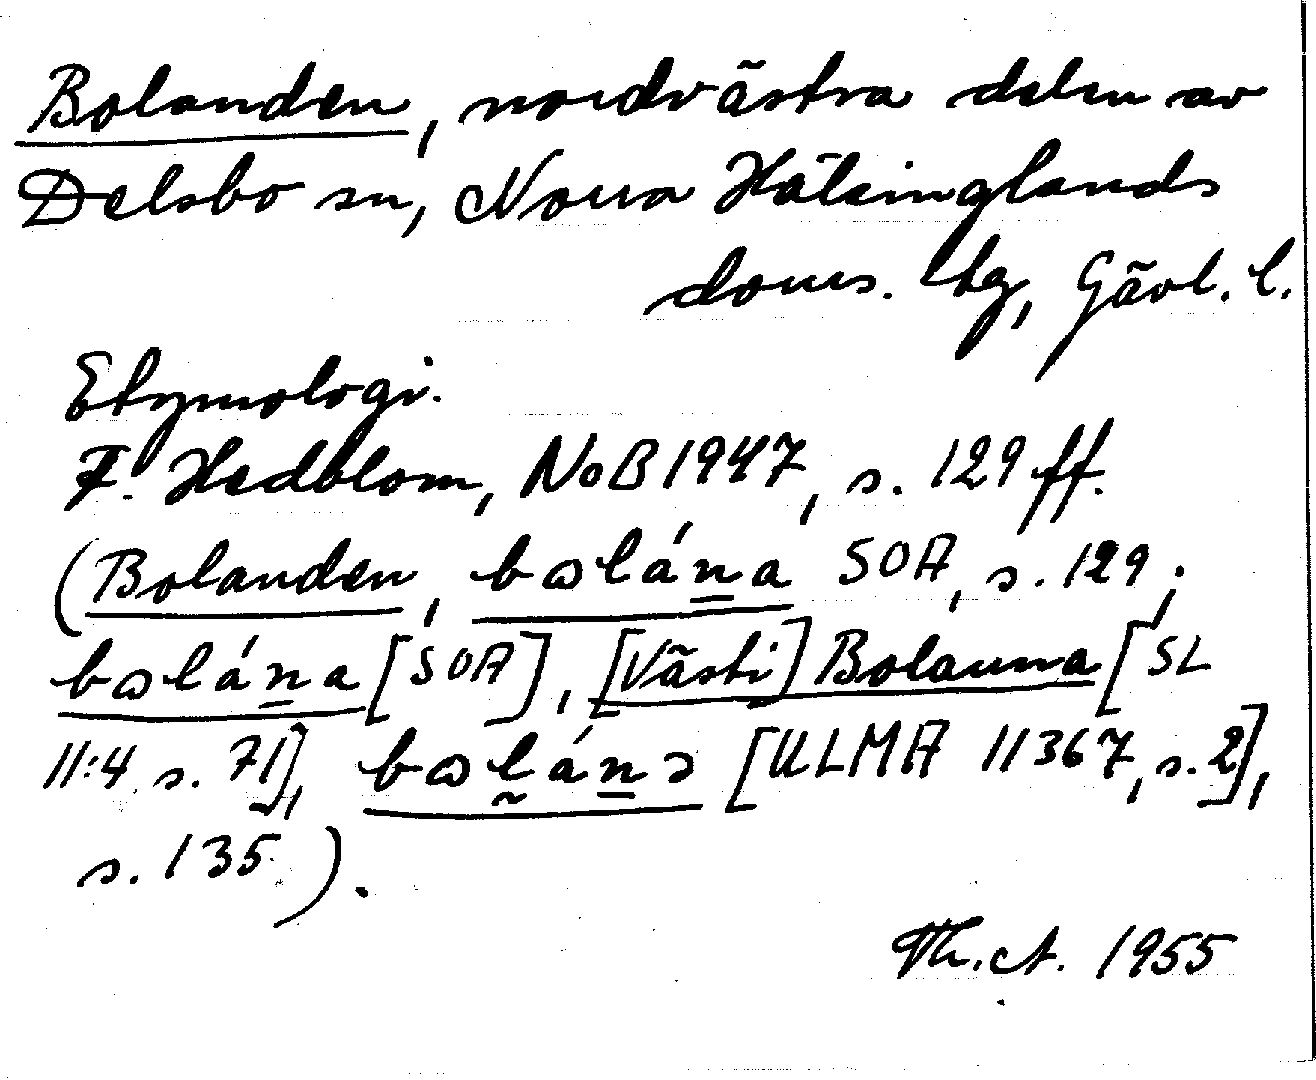 Bolanden, nordvästra delen av
Delsbo sn, Norra Hälsinglands
doms. tg, Gävl. l.
Etymologi.
F. Hedblom, NoB 1947, s. 129 ff.
(Bolanden, bɷlána SOA, s. 129;
bɷlána [SOA], [Västi] Bolanna [SL
11:4 s. 71], bɷlánɔ [ULMA 11367, s. 2],
s. 135).
Th. A. 1955